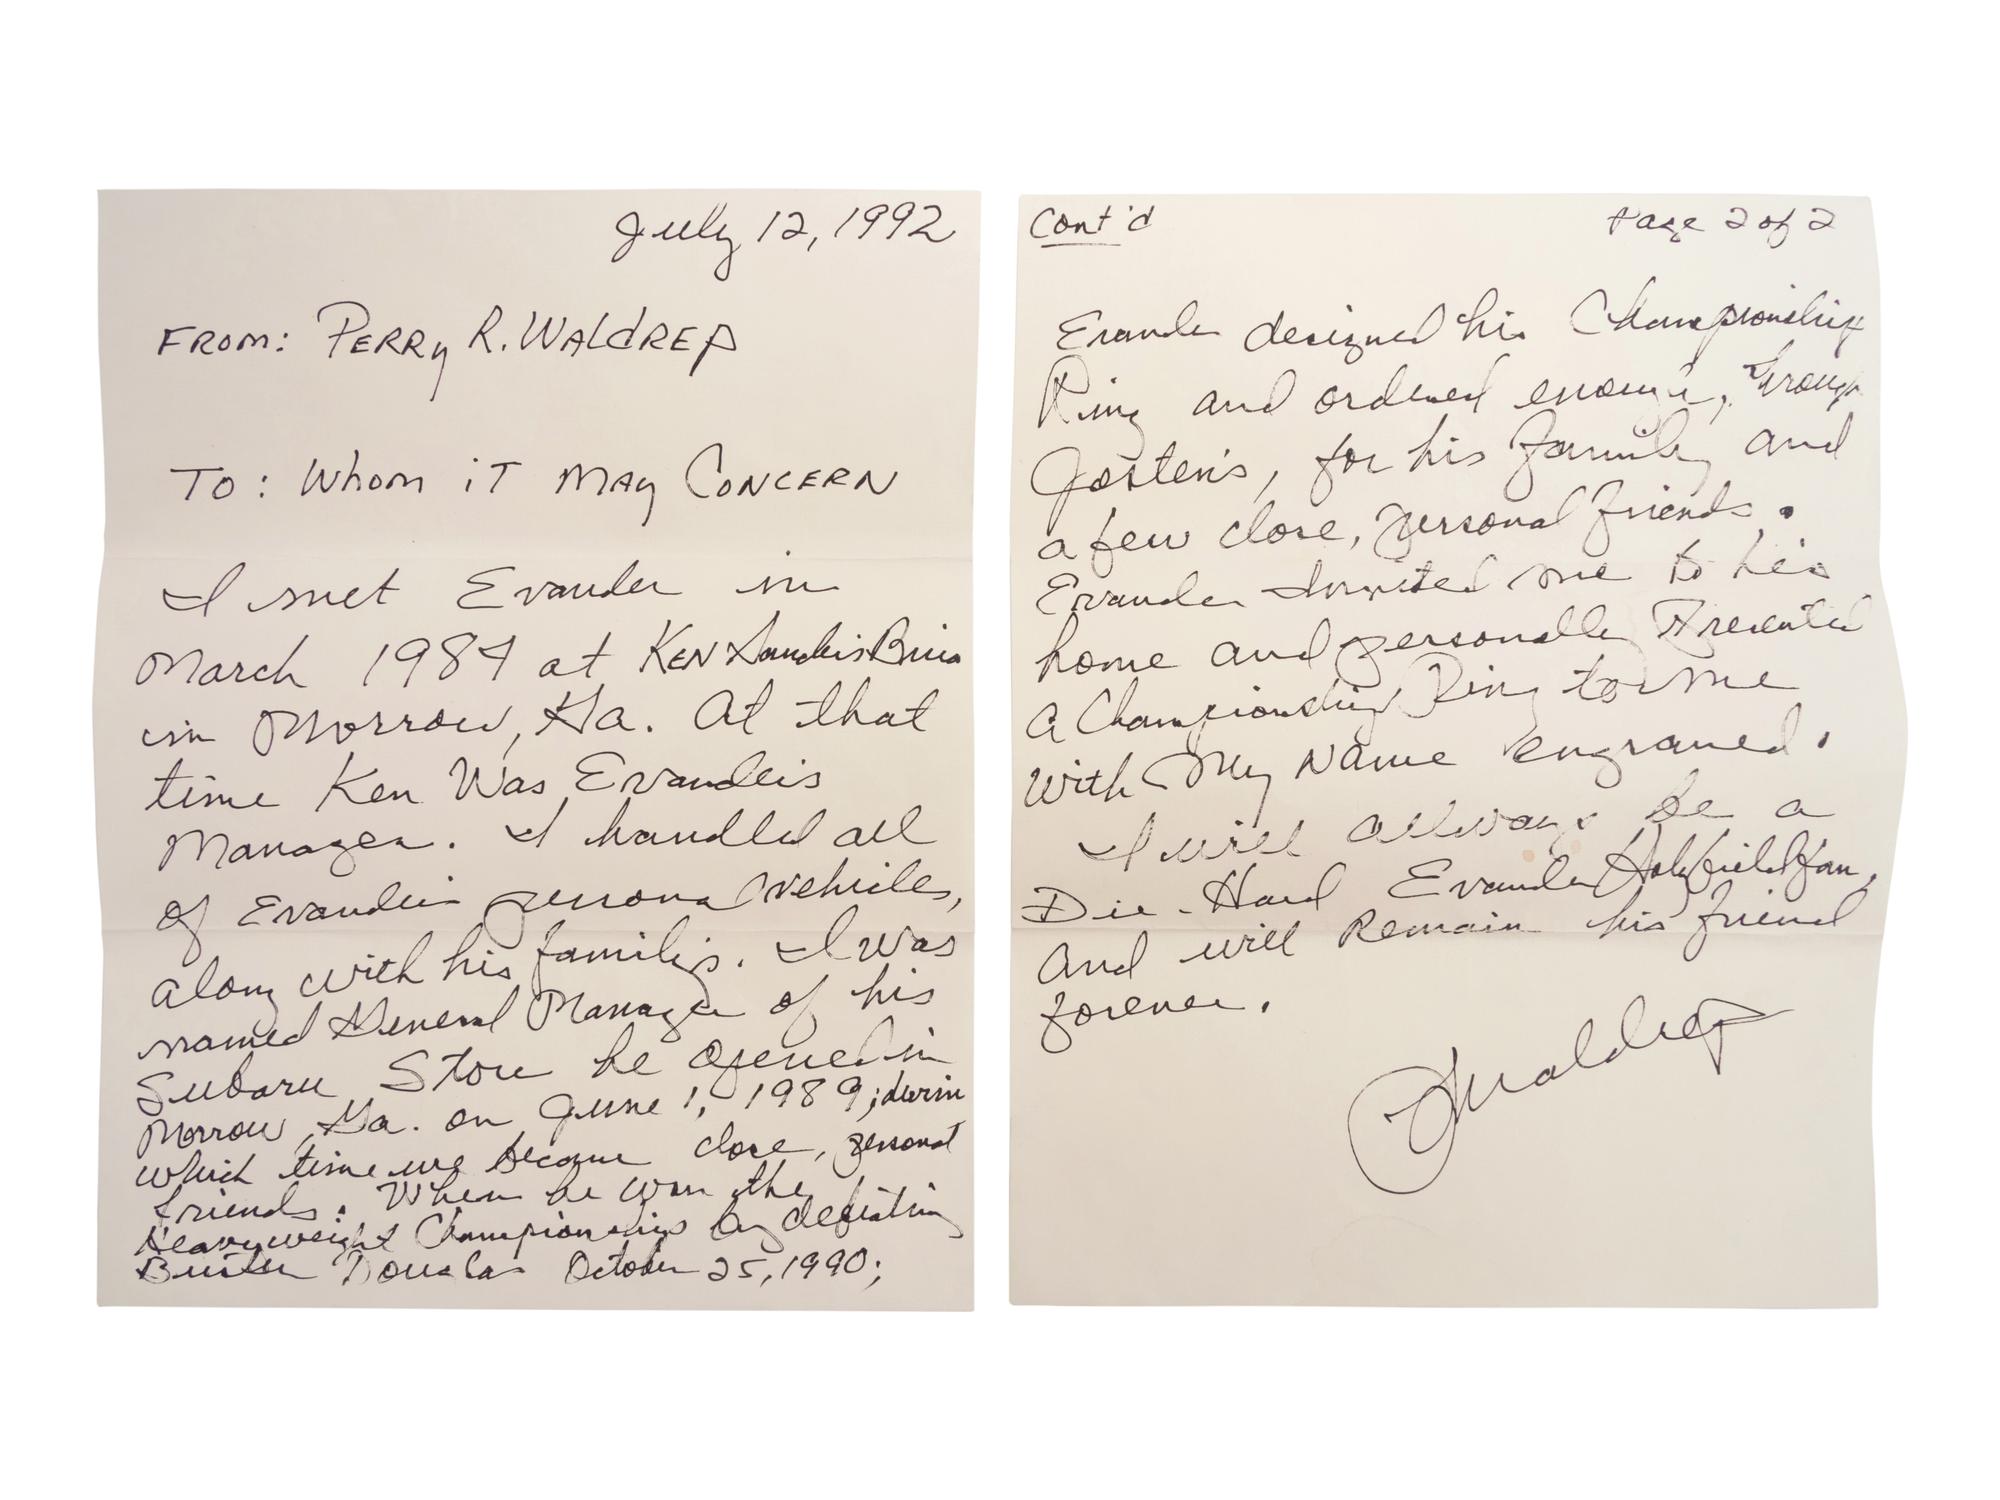 July 12, 1992
FROM: PERRY R. WALdREP
TO: Whom iT MAy CONCERN
I met Evander in
March 1984 at KEN Sanders Buick
in Morrow, Ga. At that
time Ken Was Evander's
Manager. I handled all
of Evander's personal vehicles,
along with his family's. I was
named General Manager of his
Subaru Store he opened in
Morrow, Ga. on June 1, 1989; durin
which time we became close, personal
friends. When he won the
Heavyweight Championship by defeating
Buster Douglas October 25, 1990;
Cont'd
Page 2 of 2
Evander designed his Championship
Ring and ordered enough, through
Josten's, for his family and
a few close, personal friends.
Evander Invited me to his
home and personally Presented
a Championship Ring to me
with My Name engraved.
I will allways be a
Die-Hard Evander Holyfield fan,
And will Remain his friend
forever.
PWaldrep